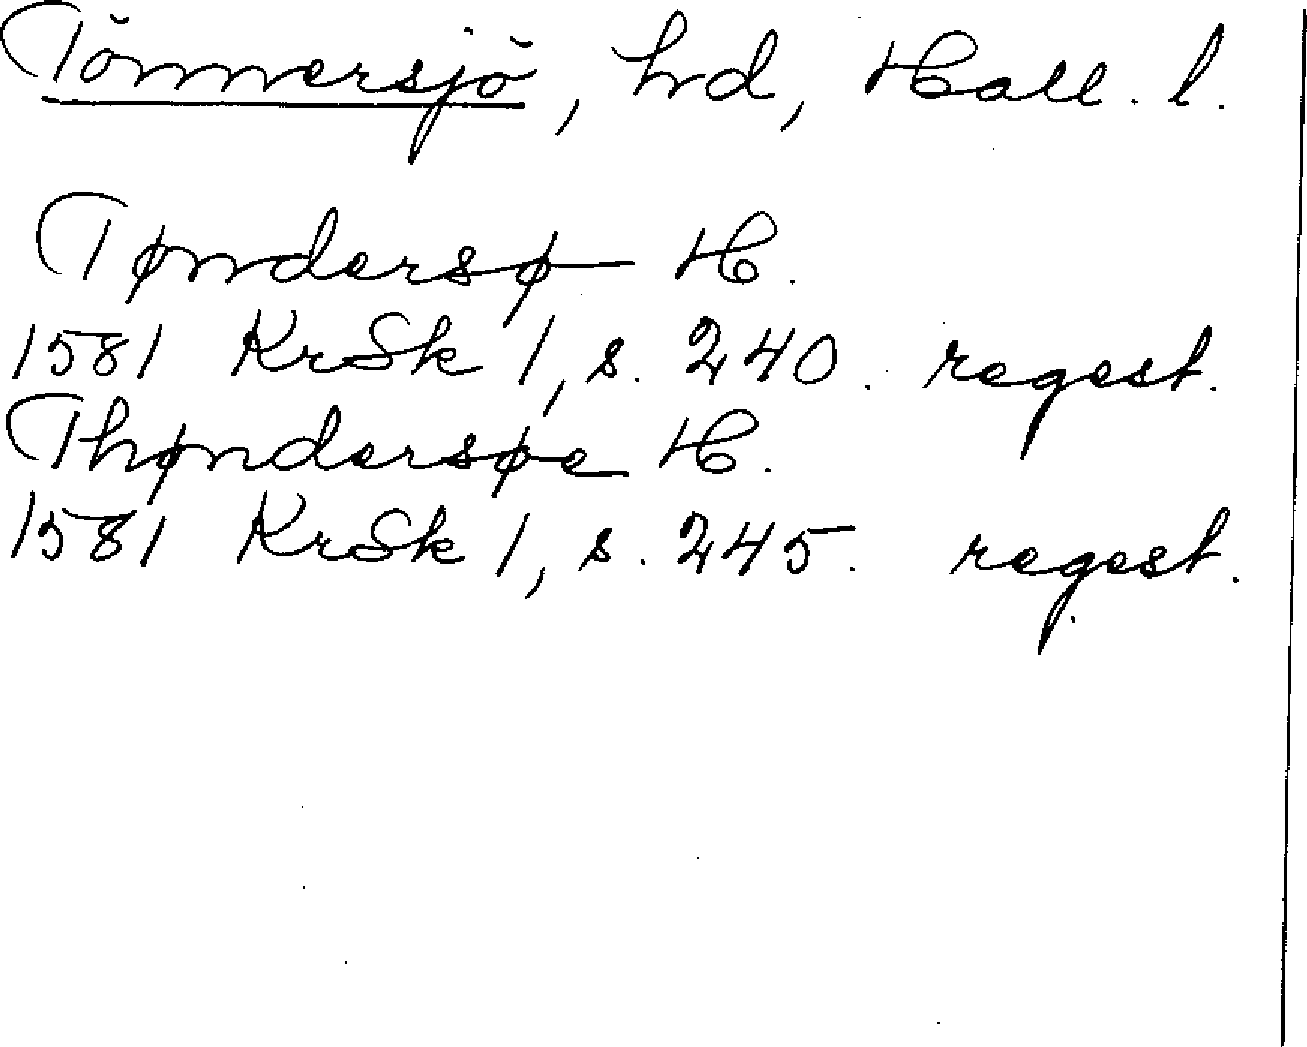 Tönnersjö, hd, Hall. l.
Tøndersø H.
1581 KrSk 1, s. 240. regest.
Thøndersøe H.
1581 KrSk 1, s. 245. regest.